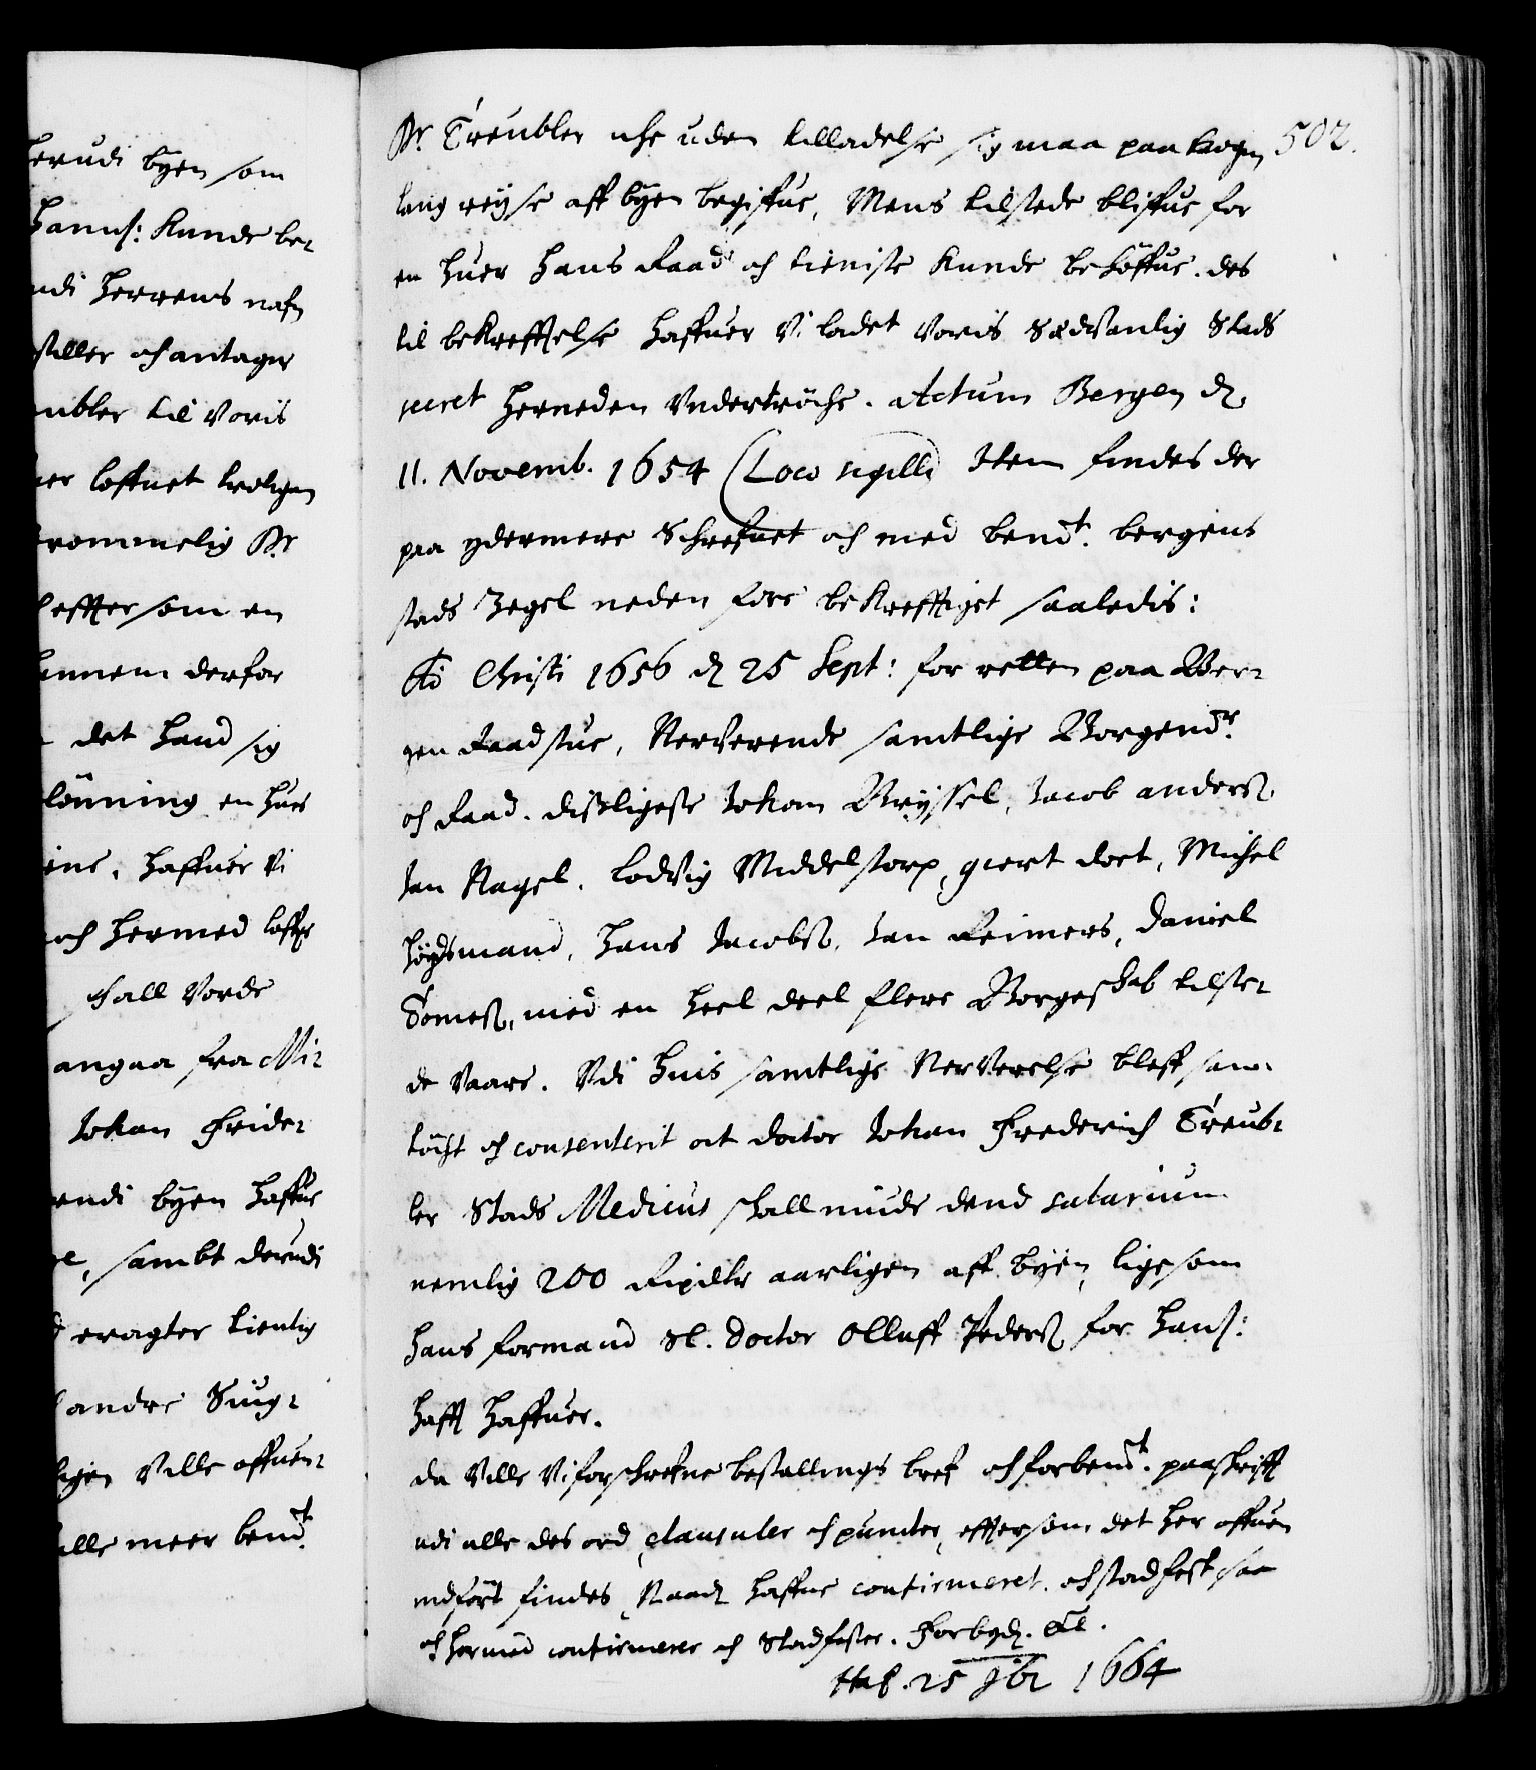 herudi byen som
hannß: Kunde be-
udi Herrens nafn
stiller och antager
eubler til Voris
er loffuet troligen
frommelig Dr
effter som en
hannem derfor
det hand sig
lönning en huer
ine, haffuer Vi
och hermed loffer
schall Vorde
angaa fra Mi-
Johan Fride-
endi byen haffue
e, sambt derudi
eragter tienlig
andre Siug-
ligen Ville offuen-
alle meer bemt
502.
Dr Treubler iche uden tilladelse sig maa paa nogen
lang reyse aff byen begiffue, Mens tilstede bliffue for
en huer hans Raad och tieniste Kunde behöffue. des
til bekrefftelse haffuer Vi ladet Voris Sædvanlig Stads
secret herneden Undertröche. Actum Bergen d.
11. Novemb. 1654 (Loco sigilli) Item findes der
paa ydermere Schrefuet och med bemt. bergens
stads Zegel neden fore bekrefftiget saaledis:
Ao Christi 1656 d 25 Sept: for retten paa Ber-
gen Raadstue, Nerverende samtlige Borgemr.
och Raad. disligeste Johan Bryssel, Jacob anderß
Jan Nagel. Lodvig Middelstorp, giert doet, Michel
höydsmand, Hans Jacobß, Jan Reimers, Daniel
Tomeß, med en heel deel flere Borgeschab tilste-
de Vaare. Udi huis samtlige Nerverelse bleff sam-
töcht och consenterit at doctor Johan Frederich Treub-
ler Stads Medicus schall niude dend salarium
nemlig 200 Rixdlr aarligen aff byen, lige som
hans formand Sl. Doctor Olluff Pederß for hanß:
hafft haffuer.
da Ville Vi forschrefne bestallings bref och forbemt. paaschrifft
udi alle des ord, clausuler och puncter, effter som det her offuen
indfört findes, Naadt haffue confirmeret och stadfest saa
och hermed confirmerer och Stadfester. Forbydt. Etc.
Haf. 25 9br 1664